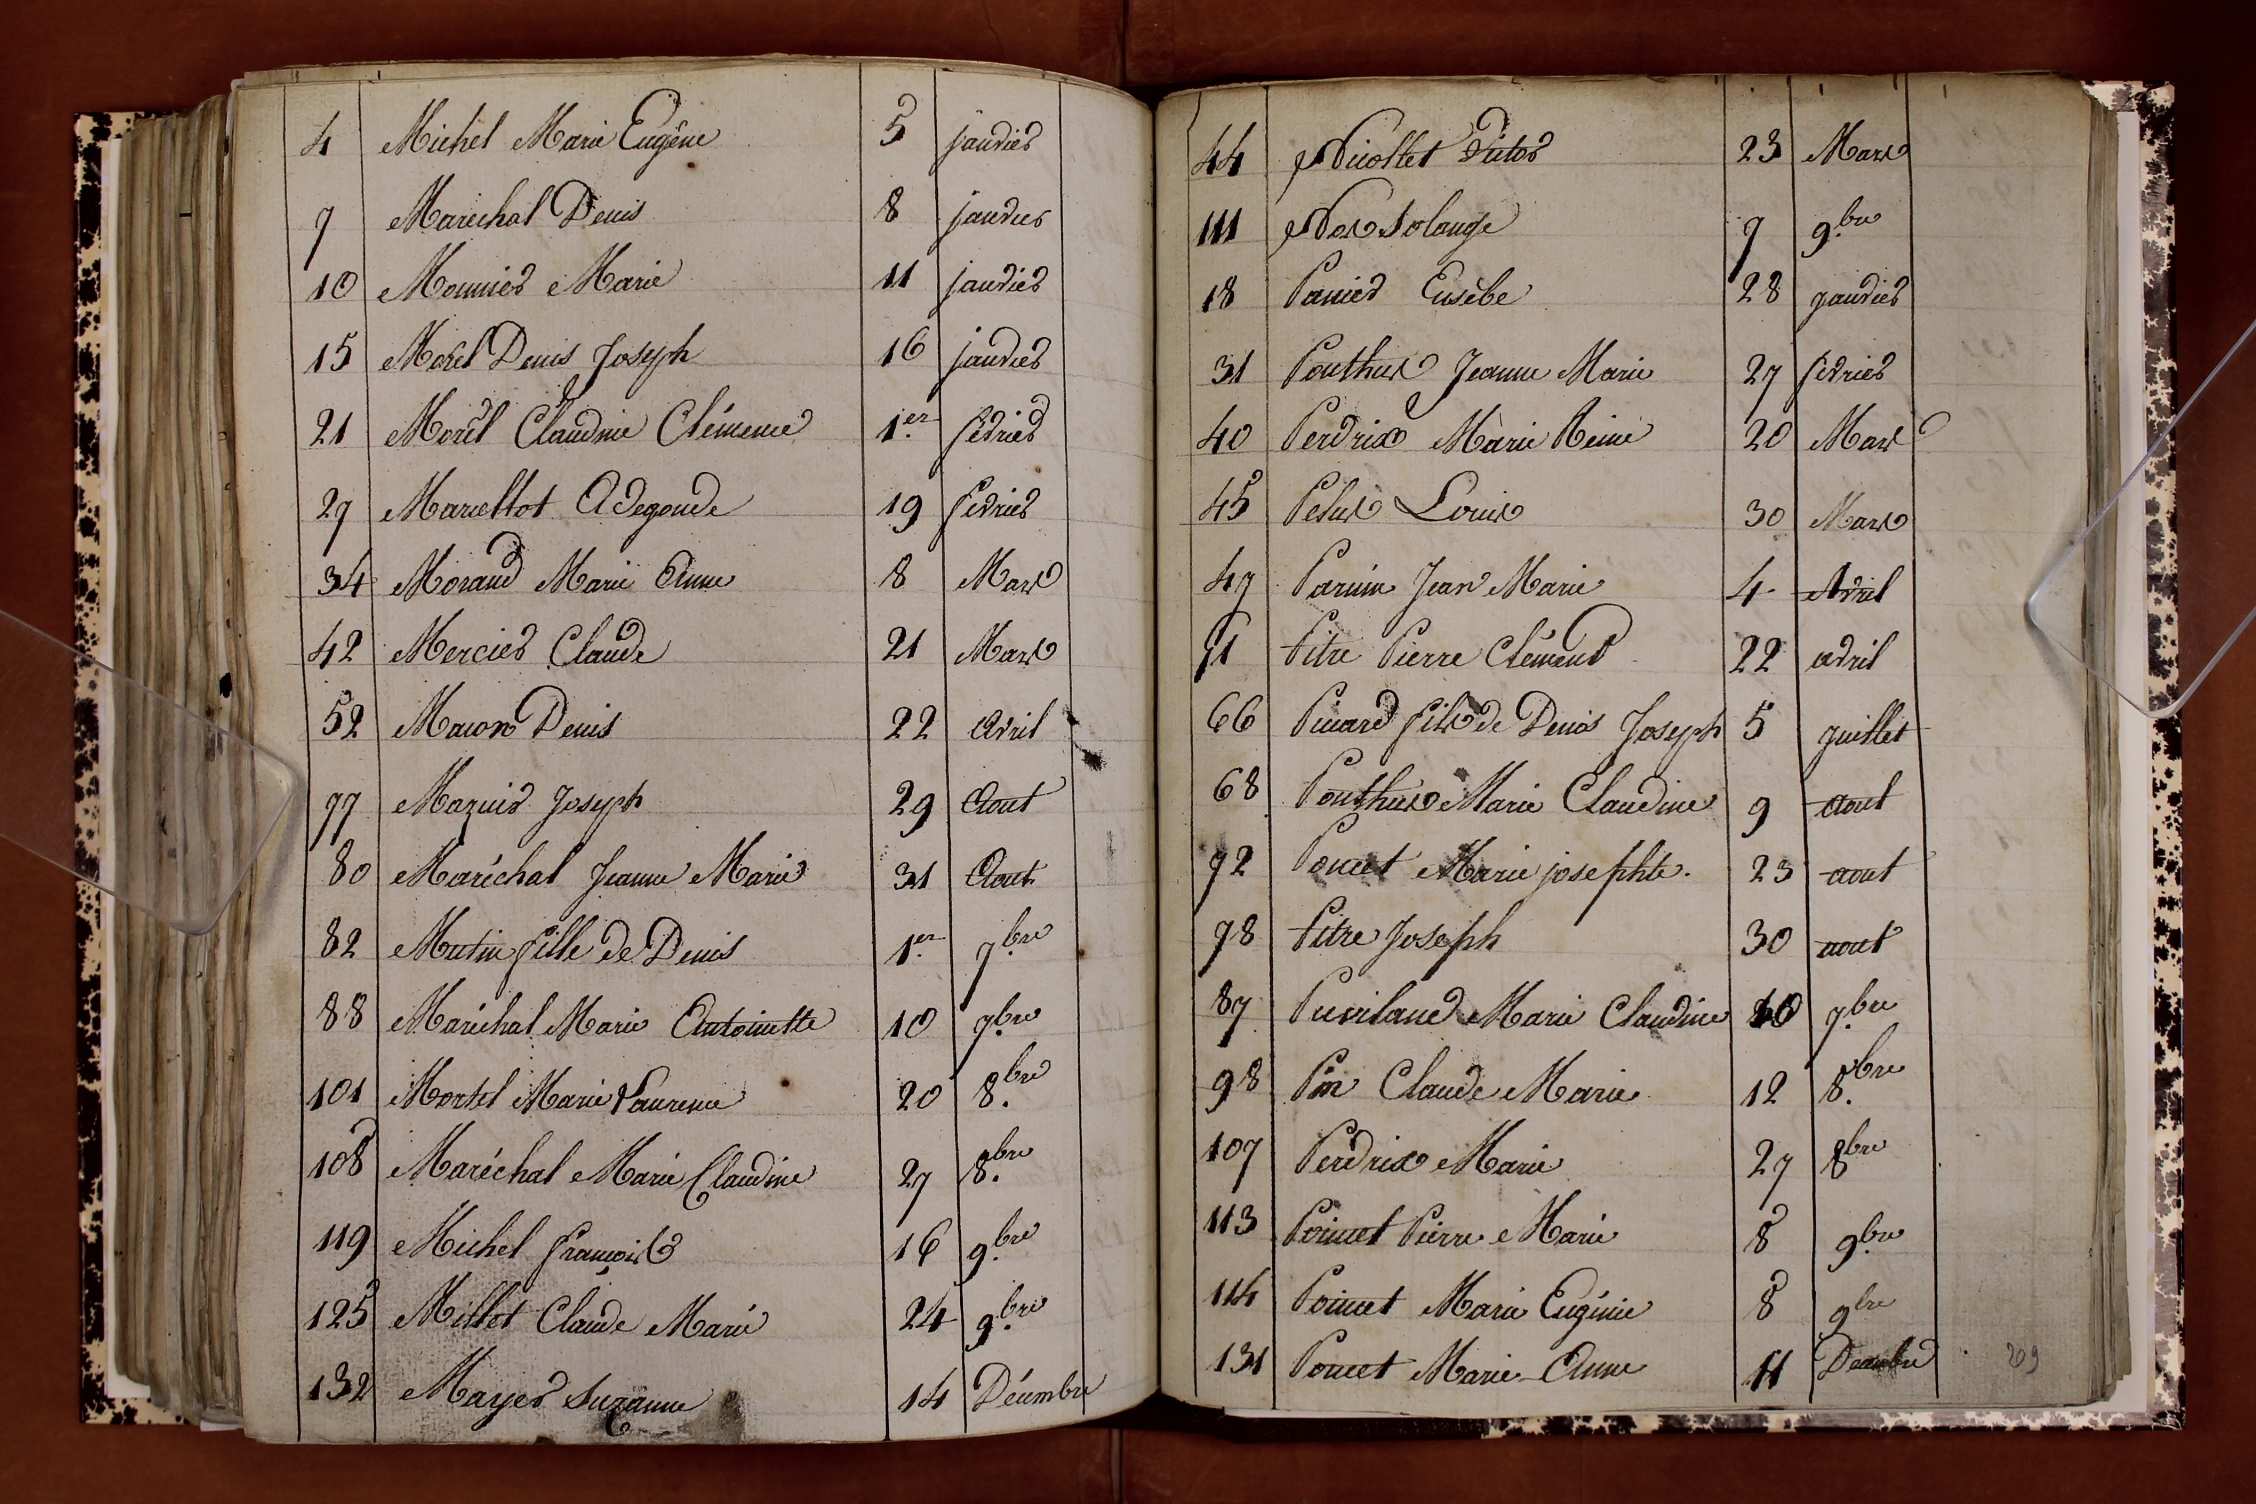 4 Michel Marie Eugène 5 janvier
7 Maréchal Denis 8 janvier
10 Mounier Marie 11 janvier
15 Morel Denis Joseph 16 janvier
21 Morel Claudine Clémence 1.er février
27 Marcellot Adegonde 19 février
34 Morand Marie Anne 8 Mars
42 Mercier Claude 21 Mars
52 Macon Denis 22 Avril
77 Joseph 29 Aout
80 Maréchal Jeanne Marie 31 Aout
82 Mutin fille de Denis 1.er 7.bre
88 Maréchal Marie Antoinette 10 7.bre
101 Mortel Marie Laurence 20 8.bre
108 Maréchal Marie Claudine 27 8.bre
119 Michel François 16 9.bre
125 Millot Claude Marie 24 9.bre
132 Mayer Suzanne 14 Décembre
44 Nicollet Victor 23 Mars
111 Nos Solange 7 9.bre
18 Panier Eusèbe 28 janvier
31 Ponthus Jeanne Marie 27 février
40 Perdrix Marie Reine 20 Mars
45 Pelus Louis 30 Mars
47 Jean Marie 4 Avril
51 Pitre Pierre Clément 22 avril
66 Picard fils de Denis Joseph 5 juillet
68 Ponthus Marie Claudine 9 aout
72 Poncet Marie josephte. 23 aout
78 Pitre Joseph 30 aout
87 Marie Claudine 10 7.bre
98 Pin Claude Marie 12 8.bre
107 Perdrix Marie 27 8bre
113 Poincet Pierre Marie 8 9.bre
114 Poincet Marie Eugénie 8 9bre
131 Poncet Marie Anne 11 Décembre
209